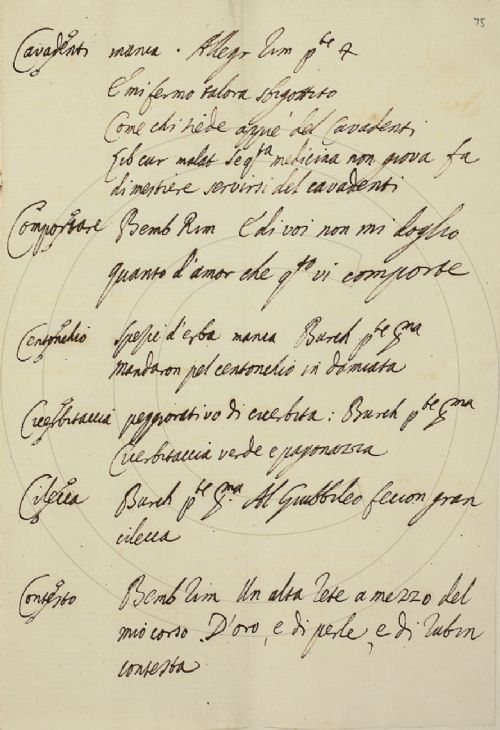 75
Cavadenti manca. Allegr Rim pte 4
E mi fermo talora sbigottito
Come chi siede appie del Cavadenti
Lib cur malat Se qta medicina non giova fa
di mestiere servirsi del cavadenti
Comportare Bemb Rim E di voi non mi doglio
quanto d'amor che qto vi comporte
Centonchio spezie d'erba manca Burch pte
Mandaron pel centonchio in Damiata
Cucuzbitaccia peggiorativo di cucurbita: Burch pte
Cucurbitaccia verde e pagonazza
Cilecca Burch pte Al Giubbileo feccion gran
cilecca
Contesto Bemb Rim Un alta Rete a mezzo del
mio corso D'oro, e di perle, e di Rubin
contesta